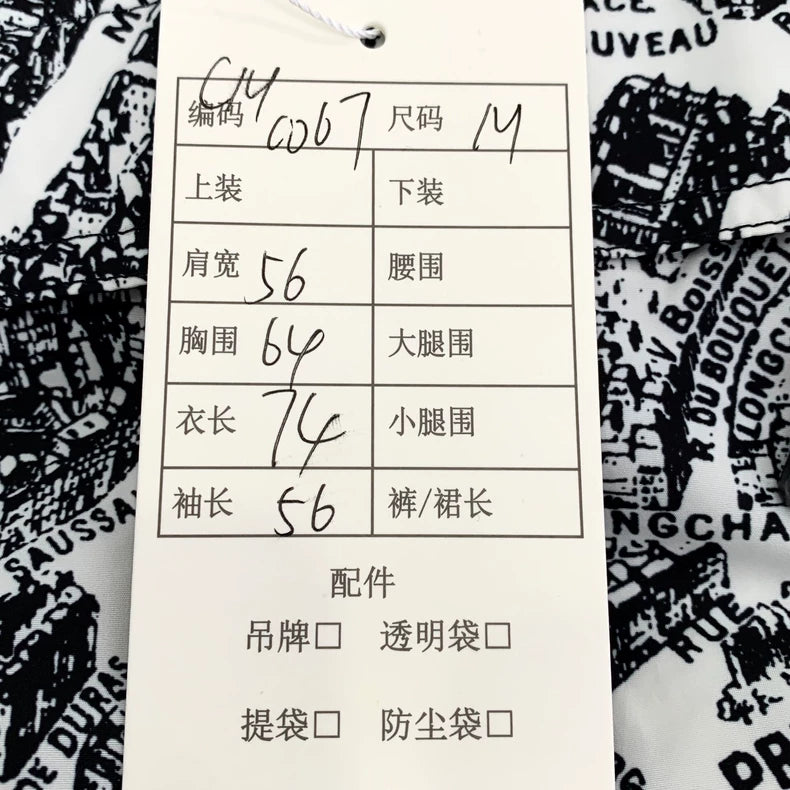 编码 CH C067 尺码 M
上装 下装
肩宽 56 腰围
胸围 64 大腿围
衣长 74 小腿围
袖长 56 裤/裙长
配件
吊牌□ 透明袋□
提袋□ 防尘袋□
ACE
UVEAU
V BOISS
R. DU BOUQUE
LONGC
NGCHA
SAUSSA
RUE
DE DURAS